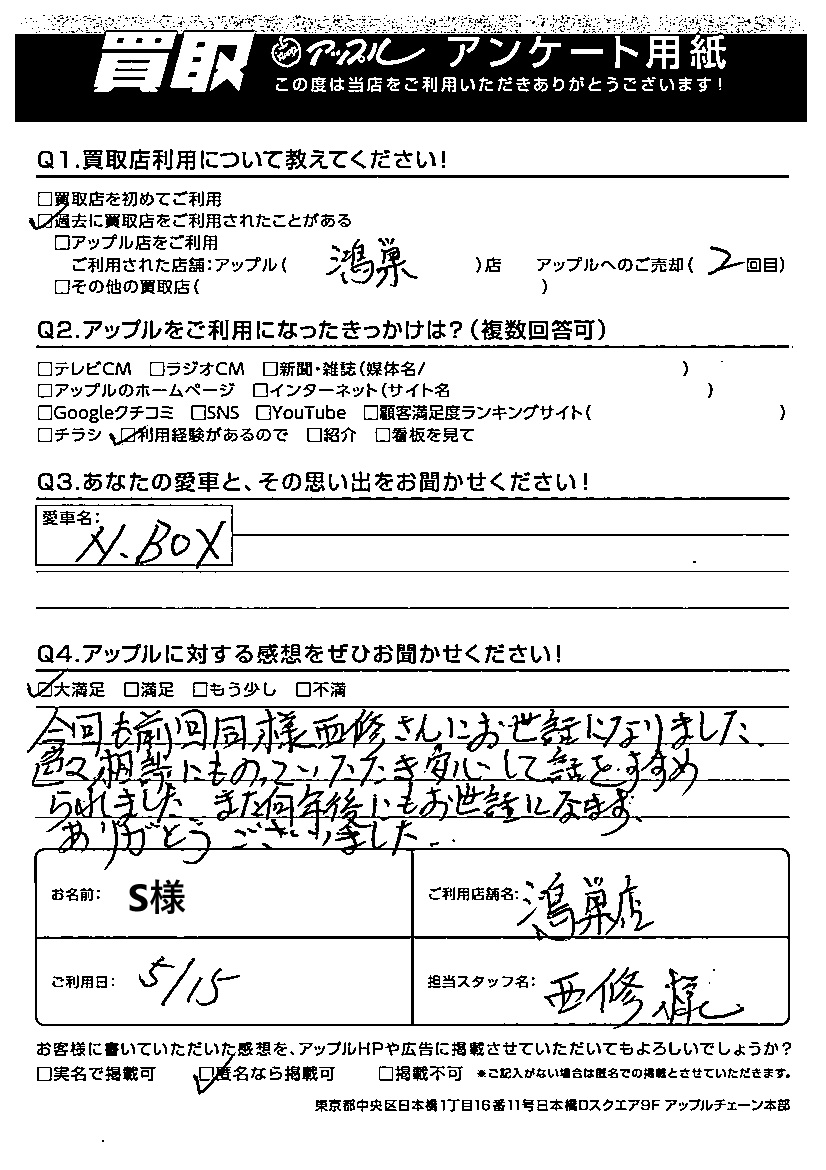 買取 アップル アンケート用紙
この度は当店をご利用いただきありがとうございます!
Q1.買取店利用について教えてください!
□買取店を初めてご利用
☑過去に買取店をご利用されたことがある
□アップル店をご利用
ご利用された店舗:アップル( 鴻巣 )店 アップルへのご売却( 2回目)
□その他の買取店( )
Q2.アップルをご利用になったきっかけは?(複数回答可)
□テレビCM □ラジオCM □新聞・雑誌(媒体名/ )
□アップルのホームページ □インターネット(サイト名 )
□Googleクチコミ □SNS □YouTube □顧客満足度ランキングサイト( )
□チラシ ☑利用経験があるので □紹介 □看板を見て
Q3.あなたの愛車と、その思い出をお聞かせください!
愛車名:
N.BOX
Q4.アップルに対する感想をぜひお聞かせください!
☑大満足 □満足 □もう少し □不満
今回も前回同様西修さんにお世話になりました.
色々相談にものっていただき安心して話をすすめ
られました また何年後にもお世話になります、
ありがとうございました..
お名前: S様 ご利用店舗名: 鴻巣店
ご利用日: 5/15 担当スタッフ名: 西修様
お客様に書いていただいた感想を、アップルHPや広告に掲載させていただいてもよろしいでしょうか?
□実名で掲載可 ☑匿名なら掲載可 □掲載不可 *ご記入がない場合は匿名での掲載とさせていただきます。
東京都中央区日本橋1丁目16番11号日本橋Dスクエア9F アップルチェーン本部